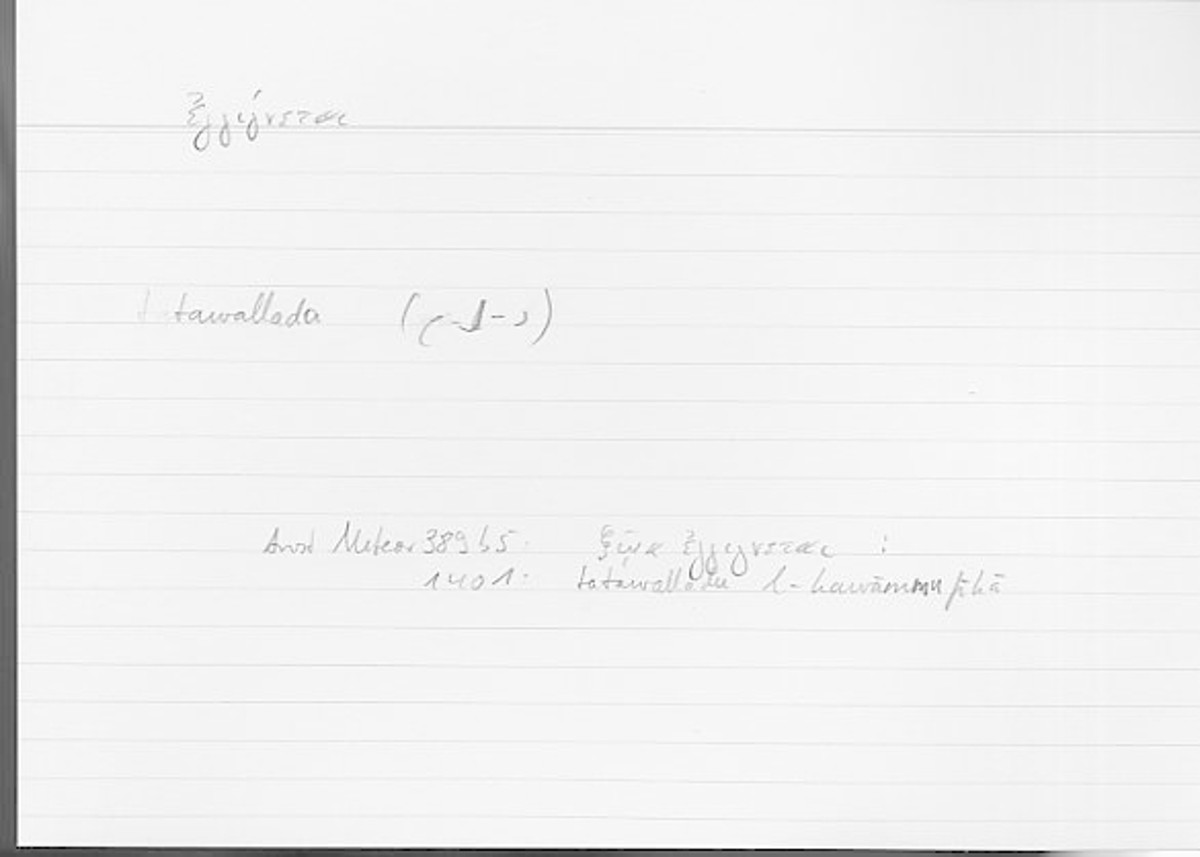 ἐγγίγνεται
tatawallada (و-ل-د)
Arist Meteor 389 b5. ζῷα ἐγγίγνεται :
1401. tatawalladu l-hawāmmu fīhā